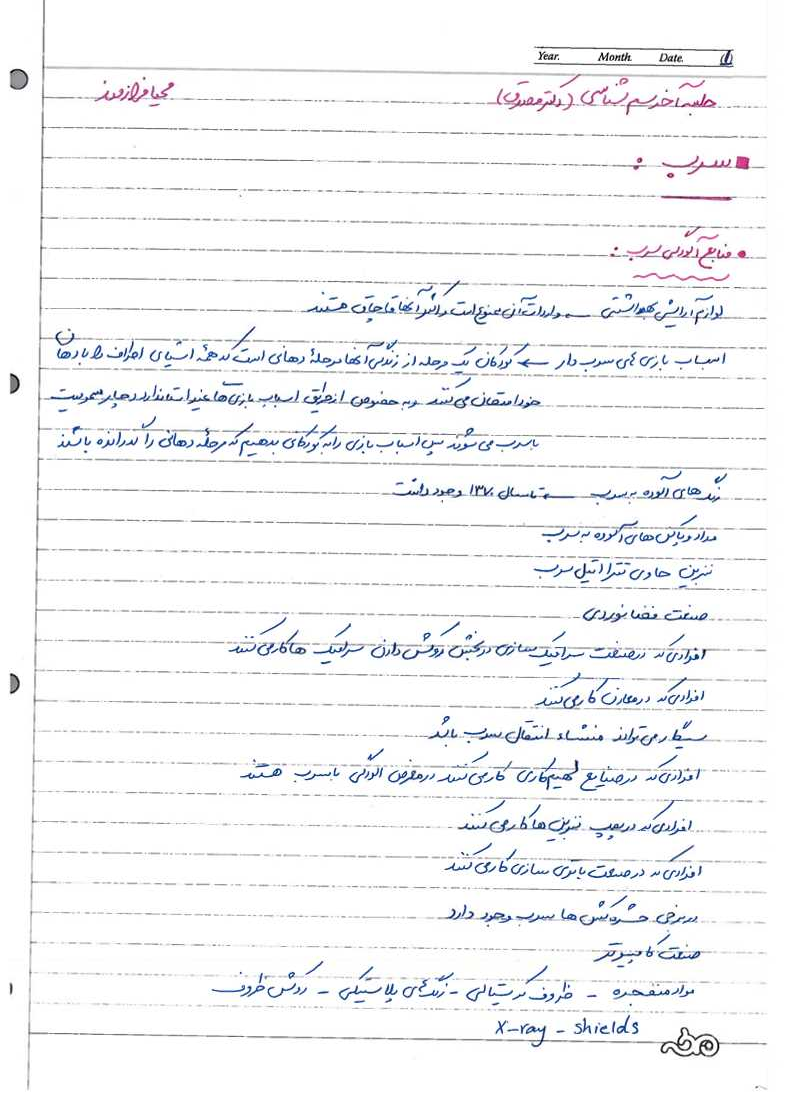 Year. Month. Date.
جلسه آخر سم شناسی (دکتر مصدق) محیا فرازمند
سرب :
• منابع آلودگی سرب :
لوازم آرایش بهداشتی ← واردات آن ممنوع است و اکثر آنها قاچاق هستند
اسباب بازی های سرب دار ← کودکان یک مرحله از زندگی آنها مرحلهٔ دهانی است که همهٔ اشیای اطراف را با دهان
خود امتحان می کنند و به خصوص از طریق اسباب بازی های غیر استاندارد دچار مسمومیت
با سرب می شوند پس اسباب بازی را به کودکانی بدهیم که مرحلهٔ دهانی را گذرانده باشند
رنگ های آلوده به سرب ← تا سال ۱۳۷۰ وجود داشت
مداد پاکن های آلوده به سرب
بنزین حاوی تترا اتیل سرب
صنعت فضانوردی
افرادی که در صنعت سرامیک سازی در بخش روکش دادن سرامیک ها کار می کنند
افرادی که در معادن کار می کنند
سیگار می تواند منشاء انتقال سرب باشد
افرادی که در صنایع لهیم کاری کار می کنند در معرض الودگی با سرب هستند
افرادی که در پمپ بنزین ها کار می کنند
افرادی که در صنعت باتری سازی کار می کنند
در برخی حشره کش ها سرب وجود دارد
صنعت کامپیوتر
مواد منفجره - ظروف کریستالی - رنگ های پلاستیکی - روکش ظروف
X-ray - shields